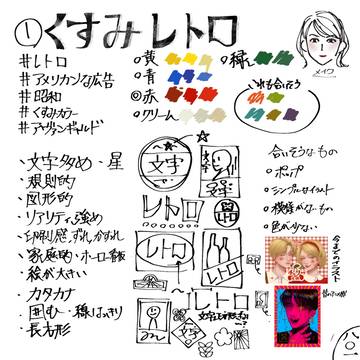 ①くすみレトロ
#レトロ
#アメリカンな広告
#昭和
#くすみカラー
#アヴァンギャルド
○黄
○緑
○青
◎赤
○クリーム
いれも合いそう
メイク
・文字多め・星
・規則的
・図形的
・リアリティ強め
・印刷感、ずれ、かすれ
・家庭的・ホーロー看板
・絵が大きい
・カタカナ
・囲む・線はっきり
・長方形
文字
文字
レトロ
レトロ
レトロ
文字
合いそうなもの
○ポップ
○シンプルなイラスト
○模様がないもの
○色が少ない